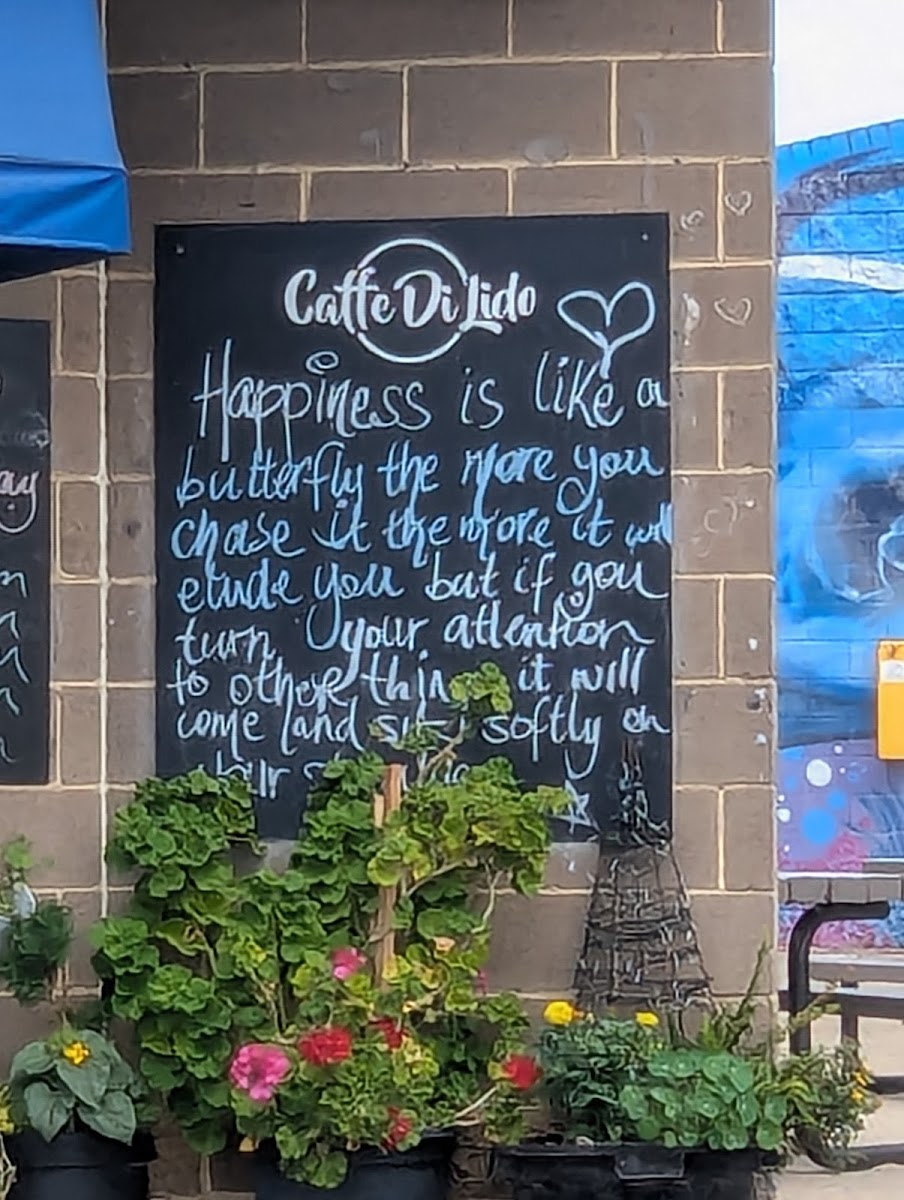 Caffe Di Lido
Happiness is like a
butterfly the more you
chase it the more it will
elude you but if you
turn your attention
to other thin it will
come and sit softly on
your
ay